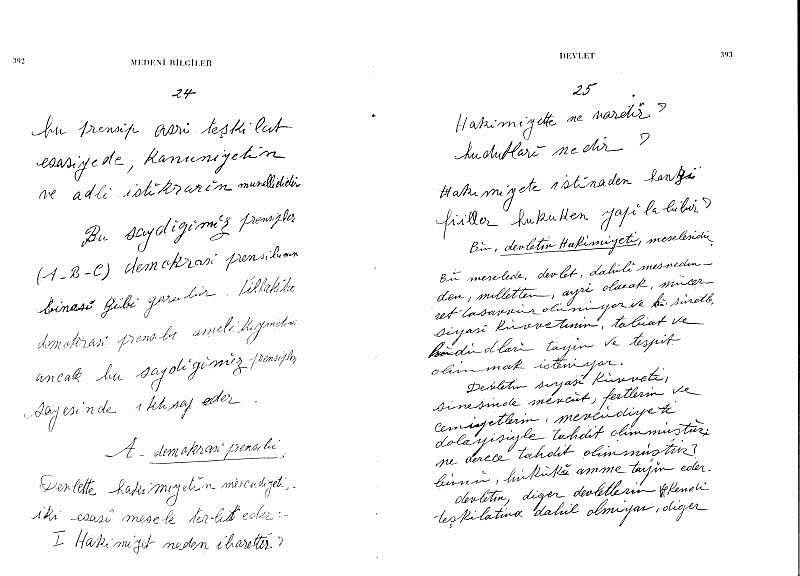 392
MEDENİ BİLGİLER
24
bu prensip asri teşkilat
esasiyede, kanuniyetin
ve adli istikrarin muvellididir
Bu saydigimiz prensipler
(A-B-C) demokrasi prensibinin
binasi gibi gorulur.
demokrasi prensibi ameli kiymetini
ancak bu saydigimiz prensipler
sayesinde iktisap eder.
A- demokrasi prensibi
Devlette hakimiyetin mevcudiyeti,
iki esasi mesele terkit eder:-
I Hakimiyet neden ibarettir?
DEVLET
393
25
Hakimiyette ne vardir?
hudutlari nedir?
Hakimiyete istinaden hangi
fiiller hukuken yapilabilir?
Bu, devletin Hakimiyeti, meselesidir.
Bu meselede, devlet, dahili mesnedin-
den, milletten, ayri olarak, mücer-
ret tasavvur olunuyor ve bu suretle,
siyasi kuvvetinin, tabiat ve
hududlari tayin ve tespit
olunmak isteniyor.
Devletin siyasi kuvveti,
sinesinde mevcut, fertlerin ve
cemiyetlerin, mevcudiyeti
dolayisiyle tahdit olunmuştur,
ne derece tahdit olunmuştur?
bunu, hukuku amme tayin eder.
devletin, diger devletlerin kendi
teşkilatina dahil olmiyan, diger